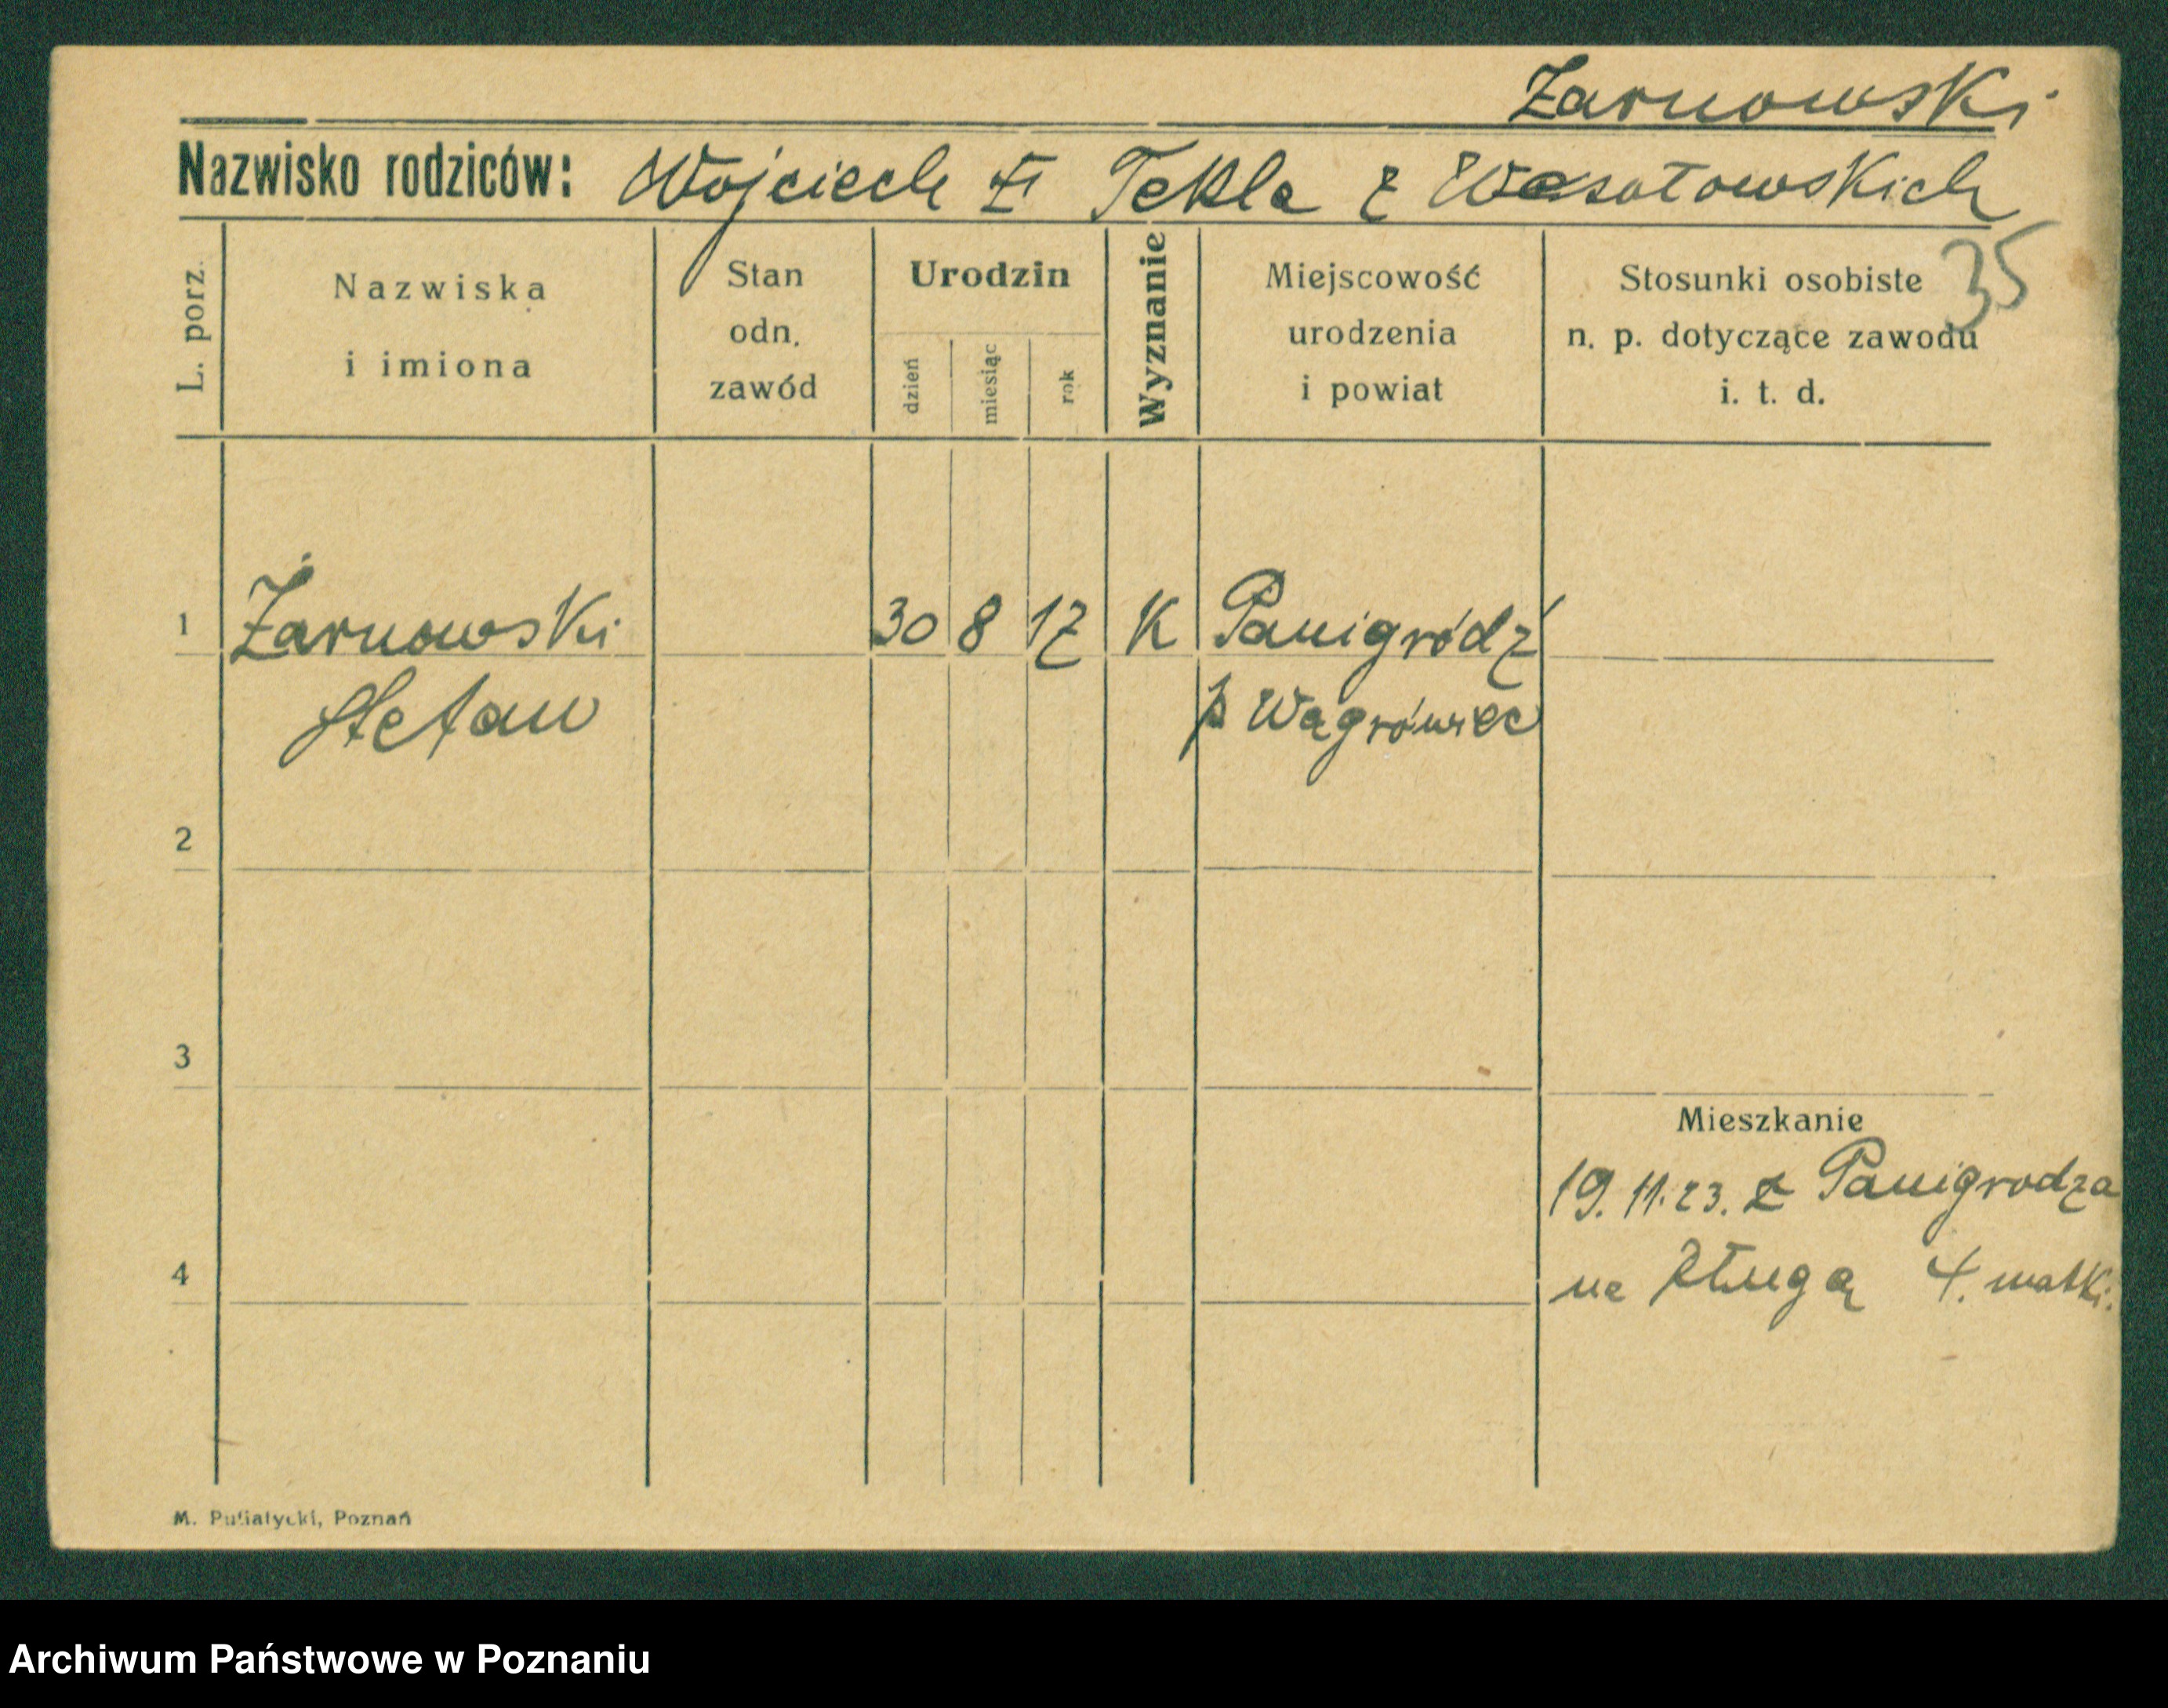 Żarnowski
Nazwisko rodziców: Wojciech i Tekla z Wesołowskich
35
L. porz.
Nazwiska
i imiona
Stan
odn.
zawód
Urodzin
dzień
miesiąc
rok
Wyznanie
Miejscowość
urodzenia
i powiat
Stosunki osobiste
n. p. dotyczące zawodu
i. t. d.
1 Żarnowski 30 8 17 K Panigródź
Stefan p Wągrówiec
2
3
Mieszkanie
19.11.23. z Panigrodza
4 na Długą 4. matki.
M. Putiatycki, Poznań
Archiwum Państwowe w Poznaniu